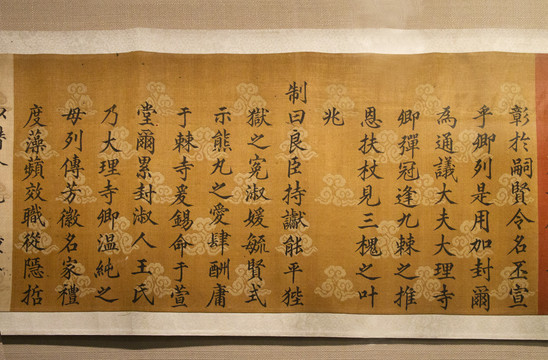 彰於嗣賢令名丕宣
乎卿列是用加封爾
為通議大夫大理寺
卿彈冠逢九棘之推
恩扶杖見三槐之叶
兆
制曰良臣持讞能平狴
獄之冤淑媛毓賢式
示熊丸之愛肆酬庸
于棘寺爰錫命于萱
堂爾累封淑人王氏
乃大理寺卿溫純之
母列傳芳徽名家禮
度藻蘋效職從隱哲